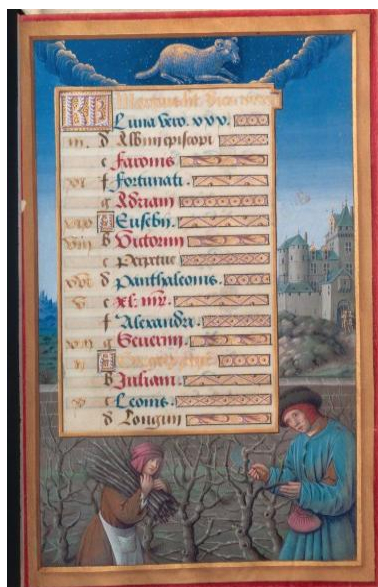 KL Martius ht dies
Luna vero. xxx.
d Albini episcopi
e Faronis
xi f Fortunati.
g Adriani
A Eusebij.
viii b Victorini
c Perpetue
xvi d Panthaleonis.
v e xl. mr̄.
f Alexandri.
g Severini.
ii A
b Juliani.
x c Leonis.
d Longini